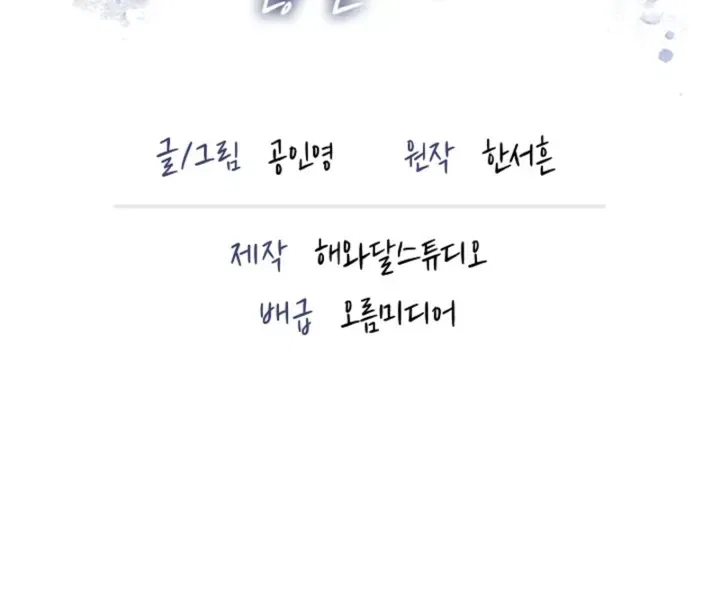 글/그림 공인영 원작 한서흔
제작 해와달스튜디오
배급 오름미디어